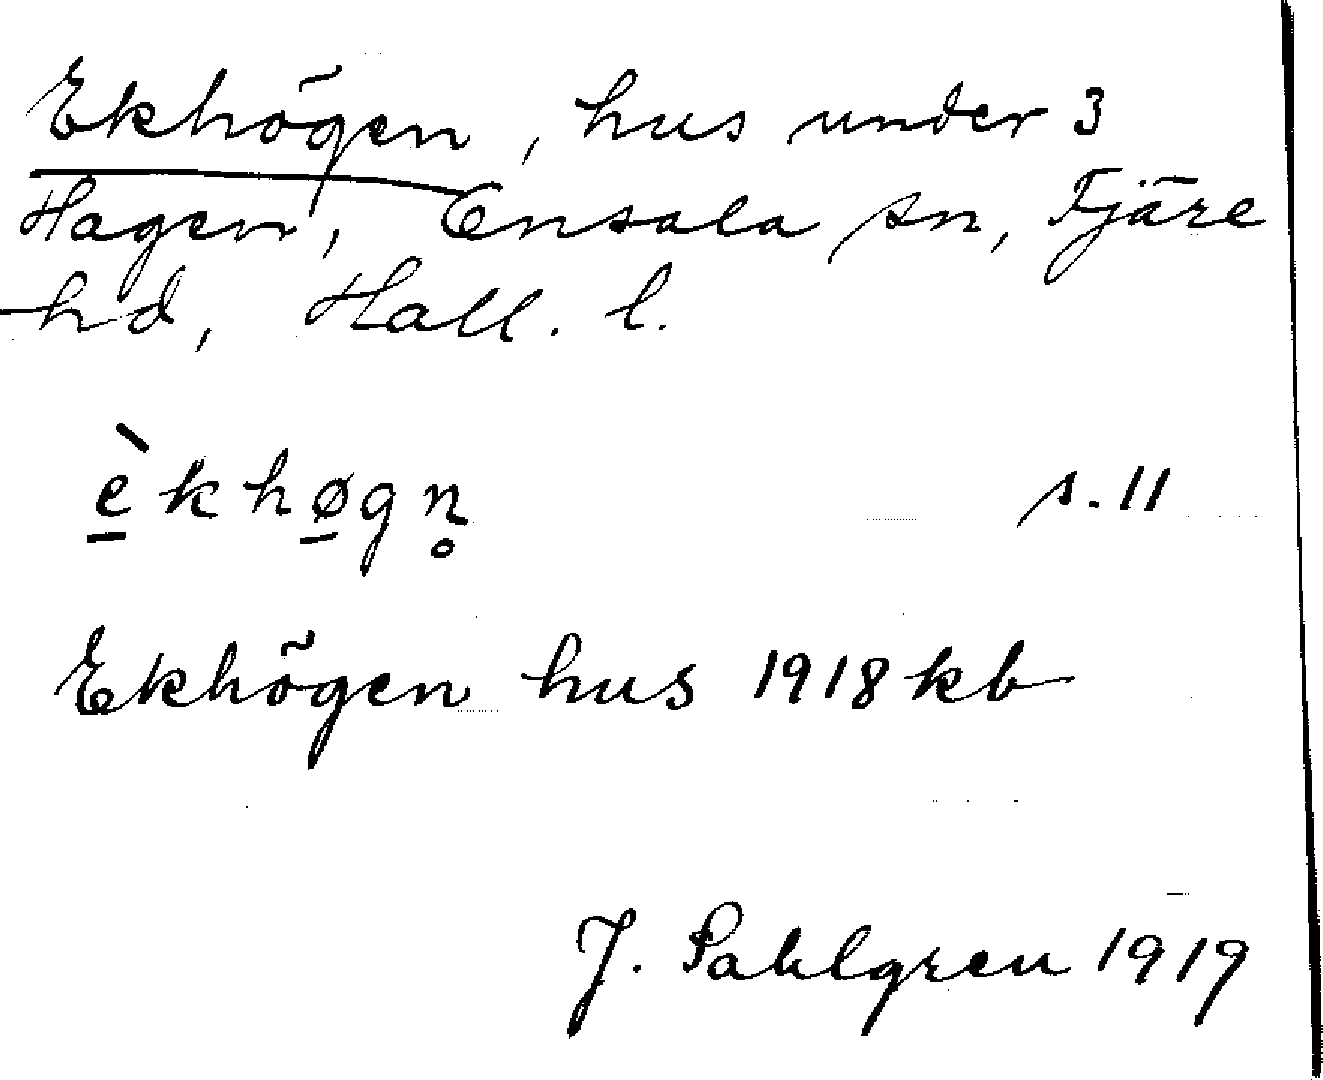 Ekhögen, hus under 3
Hagen, Onsala sn, Fjäre
hd, Hall. l.
èkhøgn̥ s. 11
Ekhögen hus 1918 kb
J. Sahlgren 1919